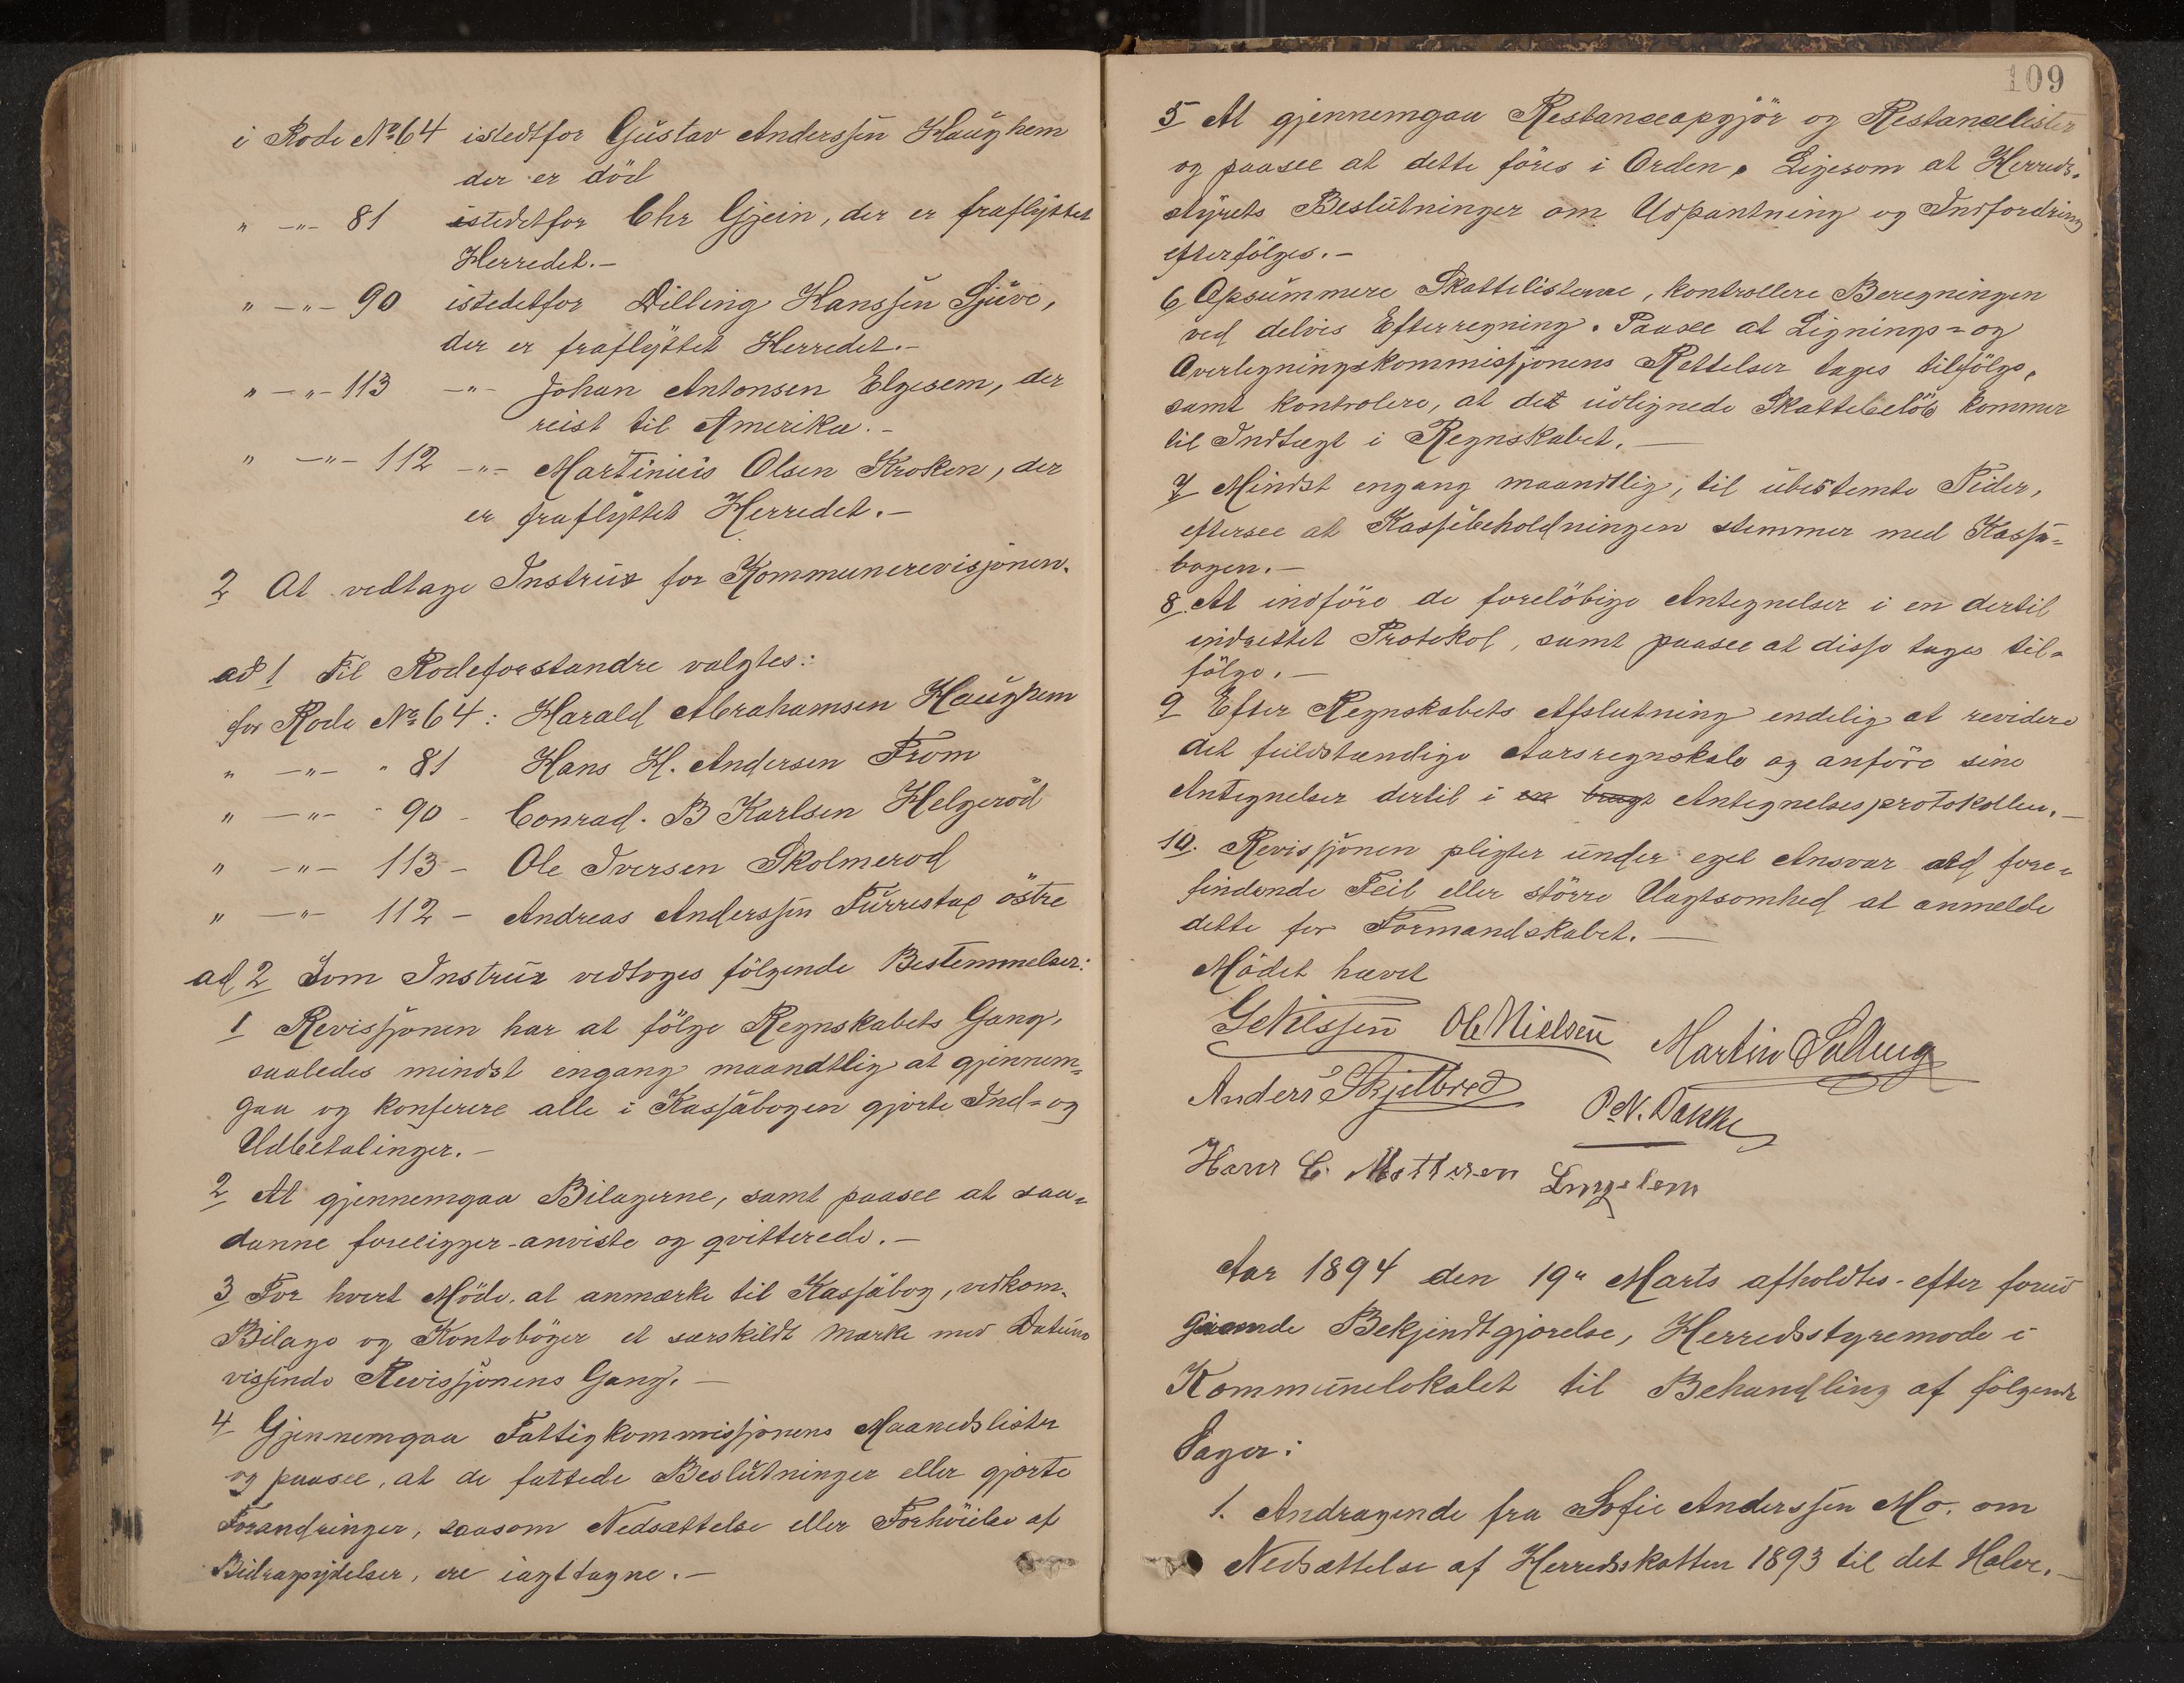 i Rode No 64 istedtfor Gustav Anderssen Haughem
der er död
" -"- 81 istedetfor Chr Gjein, der er fraflyttet
Herredet.-
" -"- 90 istedetfor Dilling Hanssen Gjuve,
der er fraflyttet Herredet.-
" -"- 113 -"- Johan Antonsen Elgesem, der
reist til Amerika.-
" -"- 112 -"- Martinius Olsen Kroken, der
er fraflyttet Herredet.-
2 At vedtage Instrux for Kommunerevisjonen.
ad 1 Til Rodeforstandre valgtes:
for Rode No 64: Harald Abrahamsen Haughem
" -"- " 81 Hans H. Andersen From
" -"- " 90 - Conrad. B Karlsen Helgeröd
" -"- 113 - Ole Iversen Skolmerod
" -"- 112 - Andreas Anderssen Furrestad östre
ad 2 Som Instrux vedtoges fölgende Bestemmelser:
1 Revissjonen har at fölge Regnskabets Gang,
saaledes mindst engang maandtlig at gjennem=
gaa og konferere alle i Kassabogen gjorte Ind= og
Udbetalinger.-
2 At gjennemgaa Bilagerne, samt paasee at saa=
danne foreligger anviste og qvitterede.-
3 For hvert Möde. at anmærke til Kassabog, vedkom.
Bilage og Kontoböger et særskildt Mærke med Datum
vissende Revissjonens Gang.-
4 Gjennemgaa Fattigkommissjonens Maanedslister
og paasee, at de fattede Beslutninger eller gjorte
Forandringer, saasom Nedsættelse eller Forhöielse af
Bidragsydelser, ere iagttagne.-
109
5 At gjennemgaa Restanceopgjör og Restancelister
og paasee at dette föres i Orden, Ligesom at Herreds.
styrets Beslutninger om Udpantning og Indfordring
efterfölges.-
6 Opsummere Skattelisterne, kontrollere Beregningen
ved delvis Efterregning. Paasee at Lignings= og
Overligningskommissjonens Rettelser tages tilfölge,
samt kontrolere, at det udlignede Skattebelöb kommer
til Indtægt i Regnskabet.-
7 Mindst engang maandtlig, til ubestemte Tider,
eftersee at Kassebeholdningen stemmer med Kassa=
bogen.-
8. At indföre de forelöbige Antegnelser i en dertil
indrettet Protokol, samt paasee at disse tages til=
fölge.-
9 Efter Regnskabets Afslutning endelig at revidere
det fuldstændige Aarsregnskab og anföre sine
Antegnelser dertil i en Antegnelsesprotokollen.-
10. Revissjonen pligter under eget Ansvar ved fore=
findende Feil eller större Uagtsomhed at anmelde
dette for Formandskabet.-
Mödet hævet
G Nilssen Ole Nielsen Martin Solberg
Anders Skjelbred P. N. Bakke
Hans C. Mathisen Lingelem
Aar 1894 den 19de Marts afholdtes efter forud
gaaende Bekjendtgjörelse, Herredsstyremøde i
Kommunelokalet til Behandling af fölgende
Sager:
1. Andragende fra Sofie Anderssen Mo. om
Nedsættelse af Herredsskatten 1893 til det Halve.-